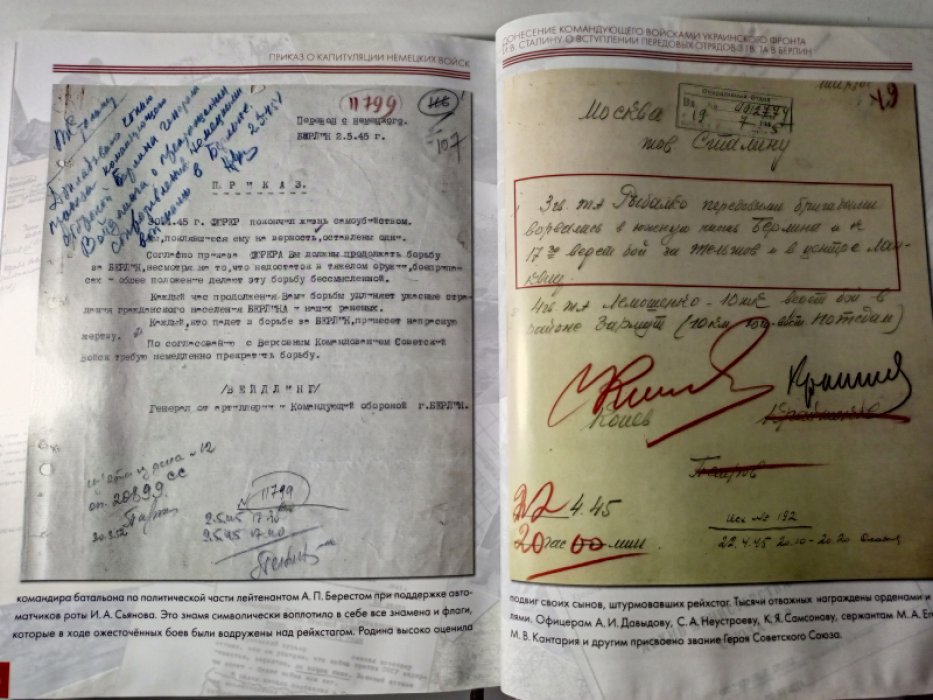 ПРИКАЗ О КАПИТУЛЯЦИИ НЕМЕЦКИХ ВОЙСК
11799
107
Перевод с немецкого.
БЕРЛИН 2.5.45 г.
Докладываю копию
приказа командующего
обороной Берлина генерала
Вейдлинга о прекращении
сопротивления немецкими
войсками в Берлине.
2.5.45г
П Р И К А З.
30.4.45 г. ФЮРЕР покончил жизнь самоубийством.
Мы, поклявшиеся ему на верность, оставлены одни.
Согласно приказа ФЮРЕРА Вы должны продолжать борьбу
за БЕРЛИН, несмотря на то, что недостаток в тяжелом оружии, боеприпа-
сах и общее положение делают эту борьбу бессмысленной.
Каждый час продолжения Вами борьбы удлиняет ужасные стра-
дания гражданского населения БЕРЛИНА и наших раненых.
Каждый, кто падет в борьбе за БЕРЛИН, принесет напрасную
жертву.
По согласованию с Верховным Командованием Советский
Войск требую немедленно прекратить борьбу.
/ВЕЙДЛИНГ/
Генерал от артиллерии и Командующий обороной г.БЕРЛИН.
оп. 20899 сс
30.3.52
№ 11799
2.5.45 17.40
командира батальона по политической части лейтенантом А. П. Берестом при поддержке авто-
матчиков роты И. А. Сьянова. Это знамя символически воплотило в себе все знамена и флаги,
которые в ходе ожесточённых боев были водружены над рейхстагом. Родина высоко оценила
ДОНЕСЕНИЕ КОМАНДУЮЩЕГО ВОЙСКАМИ УКРАИНСКОГО ФРОНТА
И.В. СТАЛИНУ О ВСТУПЛЕНИИ ПЕРЕДОВЫХ ОТРЯДОВ 3 ГВ. ТА В БЕРЛИН
Москва
тов Сталину
3 гв. та Рыбалко передовыми бригадами
ворвалась в южную часть Берлина и к
17 30 ведет бой за Тельтов и в центре Лан-
квиц.
4 гв. та Лелюшенко - 10 тк ведет бой в
районе Зармут (10 км юго-вост. Потсдам)
Конев
Крайнюков
Петров
22.4.45
20 час 00 мин
Исх № 192
22.4.45 20.10-20.20
подвиг своих сынов, штурмовавших рейхстаг. Тысячи отважных награждены орденами и
лями. Офицерам А. И. Давыдову, С. А. Неустроеву, К. Я. Самсонову, сержантам М. А. Ег
М. В. Кантария и другим присвоено звание Героя Советского Союза.